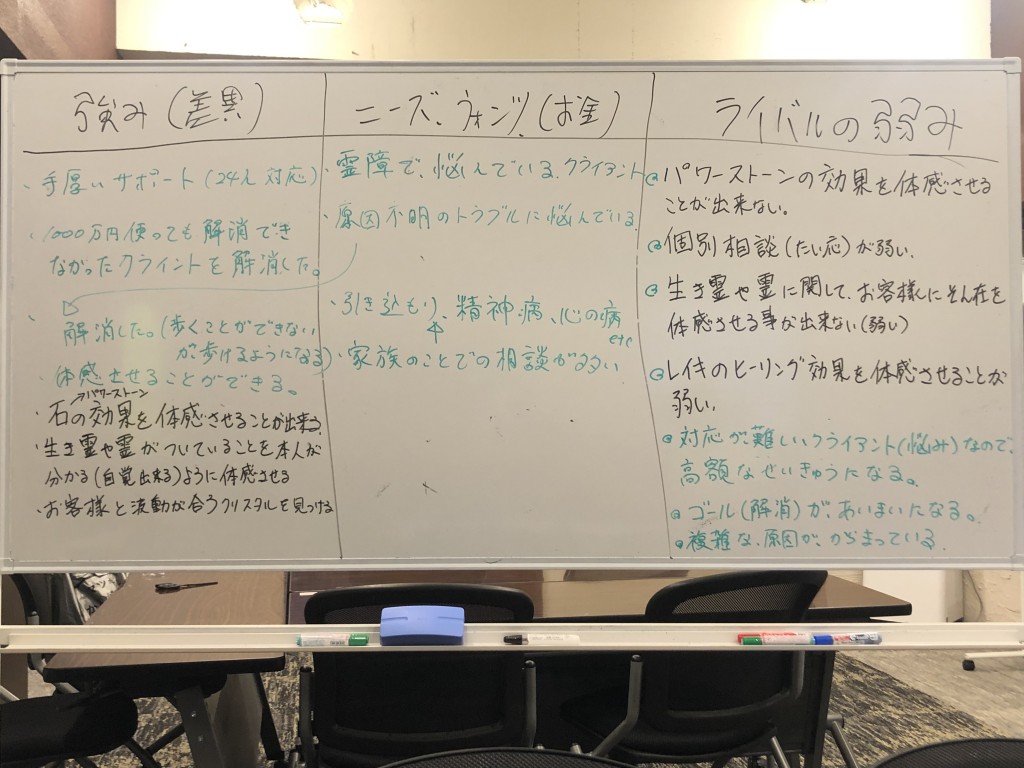 強み(差異)
・手厚いサポート(24h対応)
・1000万円使っても解消でき
なかったクライントを解消した。
・
解消した。(歩くことができない
が歩けるようになる)
・体感させることができる。
↗パワーストーン
・石の効果を体感させることが出来る
・生き霊や霊がついていることを本人が
分かる(自覚出来る)ように体感させる
・お客様と波動が合うクリスタルを見つける
ニーズ、ウォンツ、(お金)
・霊障で、悩んでいる、クライアント
・原因不明のトラブルに悩んでいる。
・
・引き込もり、精神病、心の病
etc
・家族のことでの相談が多い
ライバルの弱み
◎パワーストーンの効果を体感させる
ことが出来ない。
◎個別相談(たい応)が弱い、
◎生き霊や霊に関して、お客様にそん在を
体感させる事が出来ない(弱い)
◎レイキのヒーリング効果を体感させることが
弱い、
◎対応が、難しいクライアント(悩み)なので、
高額なせいきゅうになる。
◎ゴール(解消)が、あいまいになる。
◎複雑な、原因が、からまっている。